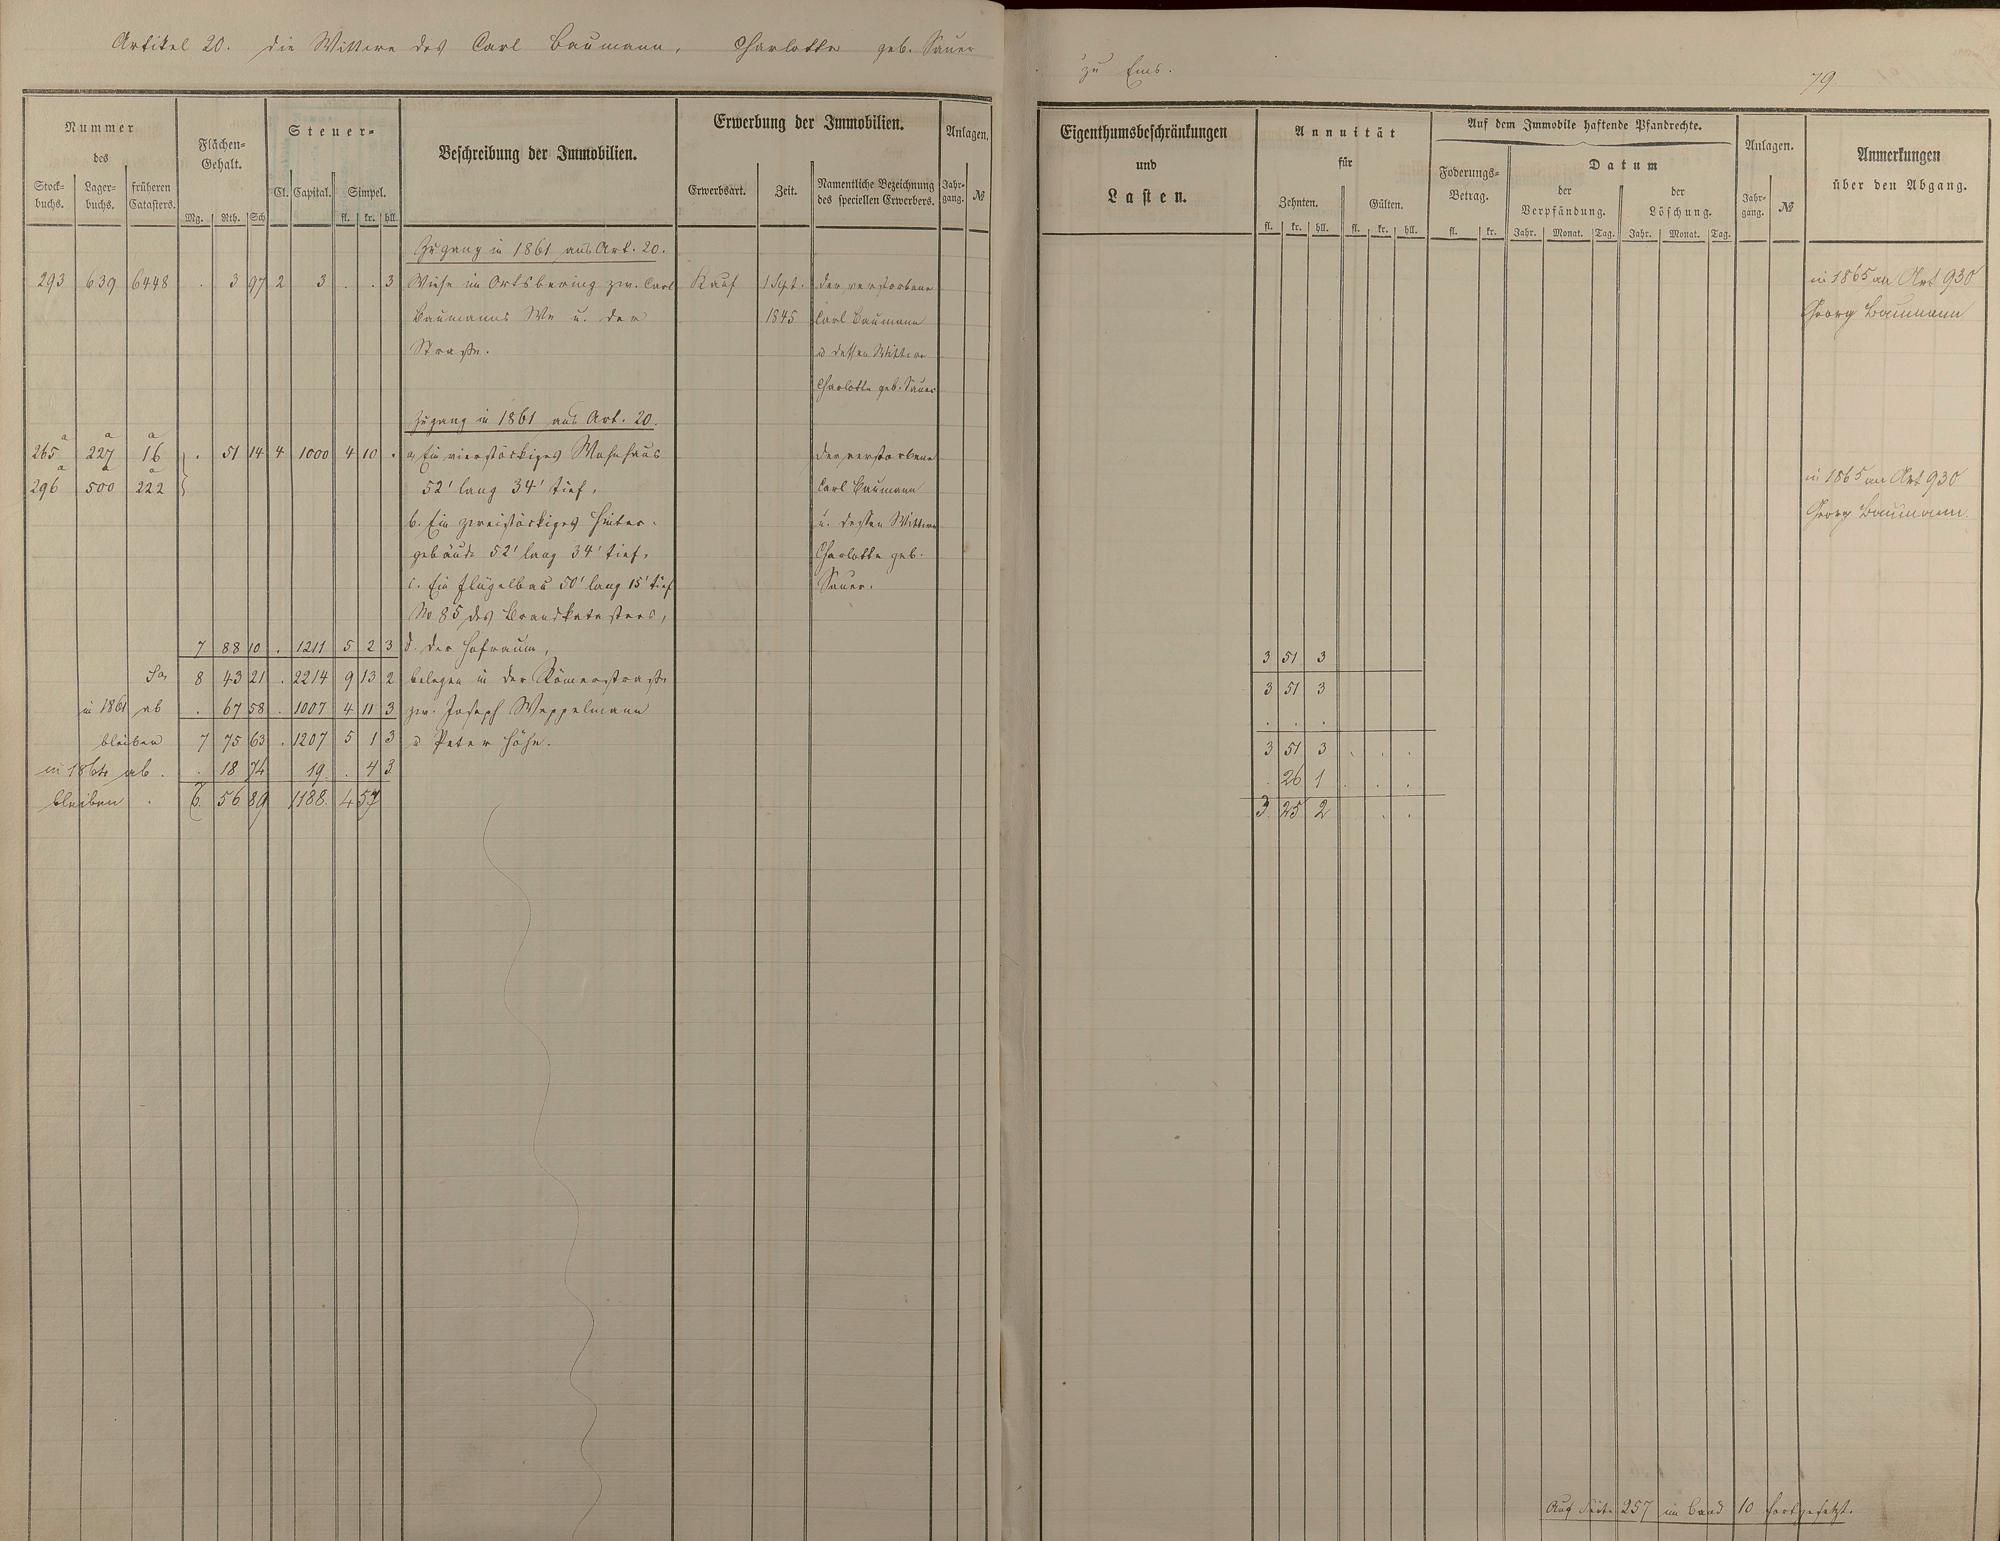 Artikel 20. die Wittwe des Carl Baumann, Charlotte geb. Sauer
zu Ems.
79.
Nummer
des
Stock-
buchs.
Lager-
buchs.
früheren
Catasters.
Flächen-
Gehalt.
Mg. Rth. Sch
Steuer-
Cl. Capital. Simpel.
fl. kr. hll.
Beschreibung der Immobilien.
Erwerbung der Immobilien.
Erwerbsart. Zeit.
Namentliche Bezeichnung
des speciellen Erwerbers.
Anlagen.
Jahr-
gang. №
Eigenthumsbeschränkungen
und
Lasten.
Annuität
für
Zehnten. Gülten.
fl. kr. hll. fl. kr. hll.
Auf dem Immobile haftende Pfandrechte.
Foderungs-
Betrag.
fl. kr.
Datum
der
Verpfändung.
Jahr. Monat. Tag.
der
Löschung.
Jahr. Monat. Tag.
Anlagen.
Jahr-
gang. №
Anmerkungen
über den Abgang.
Zugang in 1861 aus Art. 20.
293 639 6448 . 3 97 2 3 . . 3 Wiese im Ortsbering zw. Carl Kauf 1 Spt. der verstorbene in 1865 an Art 930
Baumanns We u. der 1845 Carl Baumann Georg Baumann
Straße. u dessen Wittwe
Charlotte geb. Sauer
Zugang in 1861 aus Art. 20.
a a a
265 227 16 . 51 14 4 1000 4 10 . a, Ein vierstöckiges Wohnhaus der verstorbene
a a a
296 500 222 52' lang 34' tief, Carl Baumann in 1865 an Art 930
b. Ein zweistöckiges Hinter- u. dessen Wittwe Georg Baumann.
gebäude 52' lang 34' tief, Charlotte geb.
c. Ein Flügelbau 50' lang 15' tief Sauer.
No 85 des Brandkatasters,
7 88 10 . 1211 5 2 3 d. der Hofraum, 3 51 3
Sa, 8 43 21 . 2214 9 13 2 belegen in der Römerstraße 3 51 3
in 1861 ab . 67 58 . 1007 4 11 3 zw. Joseph Weppelmann . . .
bleiben 7 75 63 . 1207 5 1 3 u Peter Höhn. 3 51 3 . . .
in 1864 ab . . 18 74 19 . 4 3 . 26 1 . . .
bleiben . 6. 56 89 1188. 4 57 3. 25 2 . .
Auf Seite 257 im Band 10 fortgesetzt.